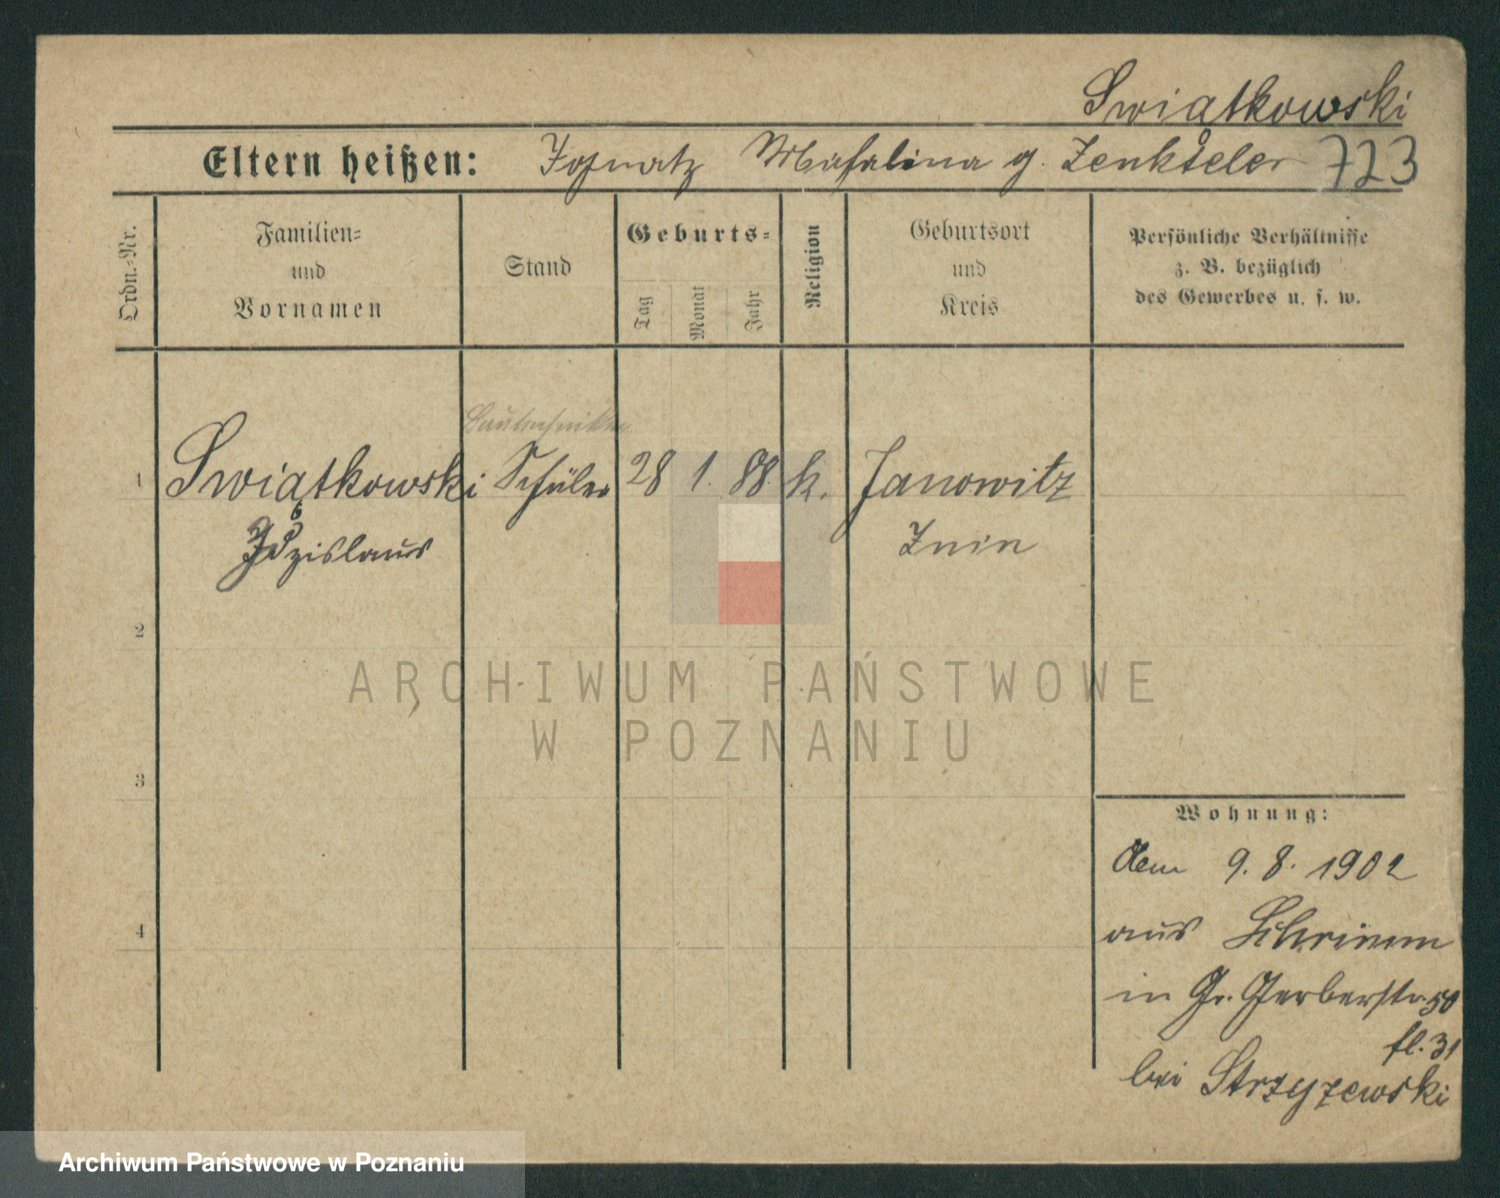 Swiatkowski
Eltern heißen: Ignatz Michalina g. Zenkteler 723
Ordn.-Nr.
Familien-
und
Vornamen
Stand
Geburts-
Tag
Monat
Jahr
Religion
Geburtsort
und
Kreis
Persönliche Verhältnisse
z. B. bezüglich
des Gewerbes u. s. w.
Bautechniker
1 Swiątkowski Schüler 28 1. 88 k. Janowitz
Zdzislaus Znin
2
ARCHIWUM PAŃSTWOWE
W POZNANIU
3
Wohnung:
Dem 9. 8. 1902
4
aus Schrimm
in Gr. Gerberstr. 50
fl. 31
bei Strzyzewski
Archiwum Państwowe w Poznaniu